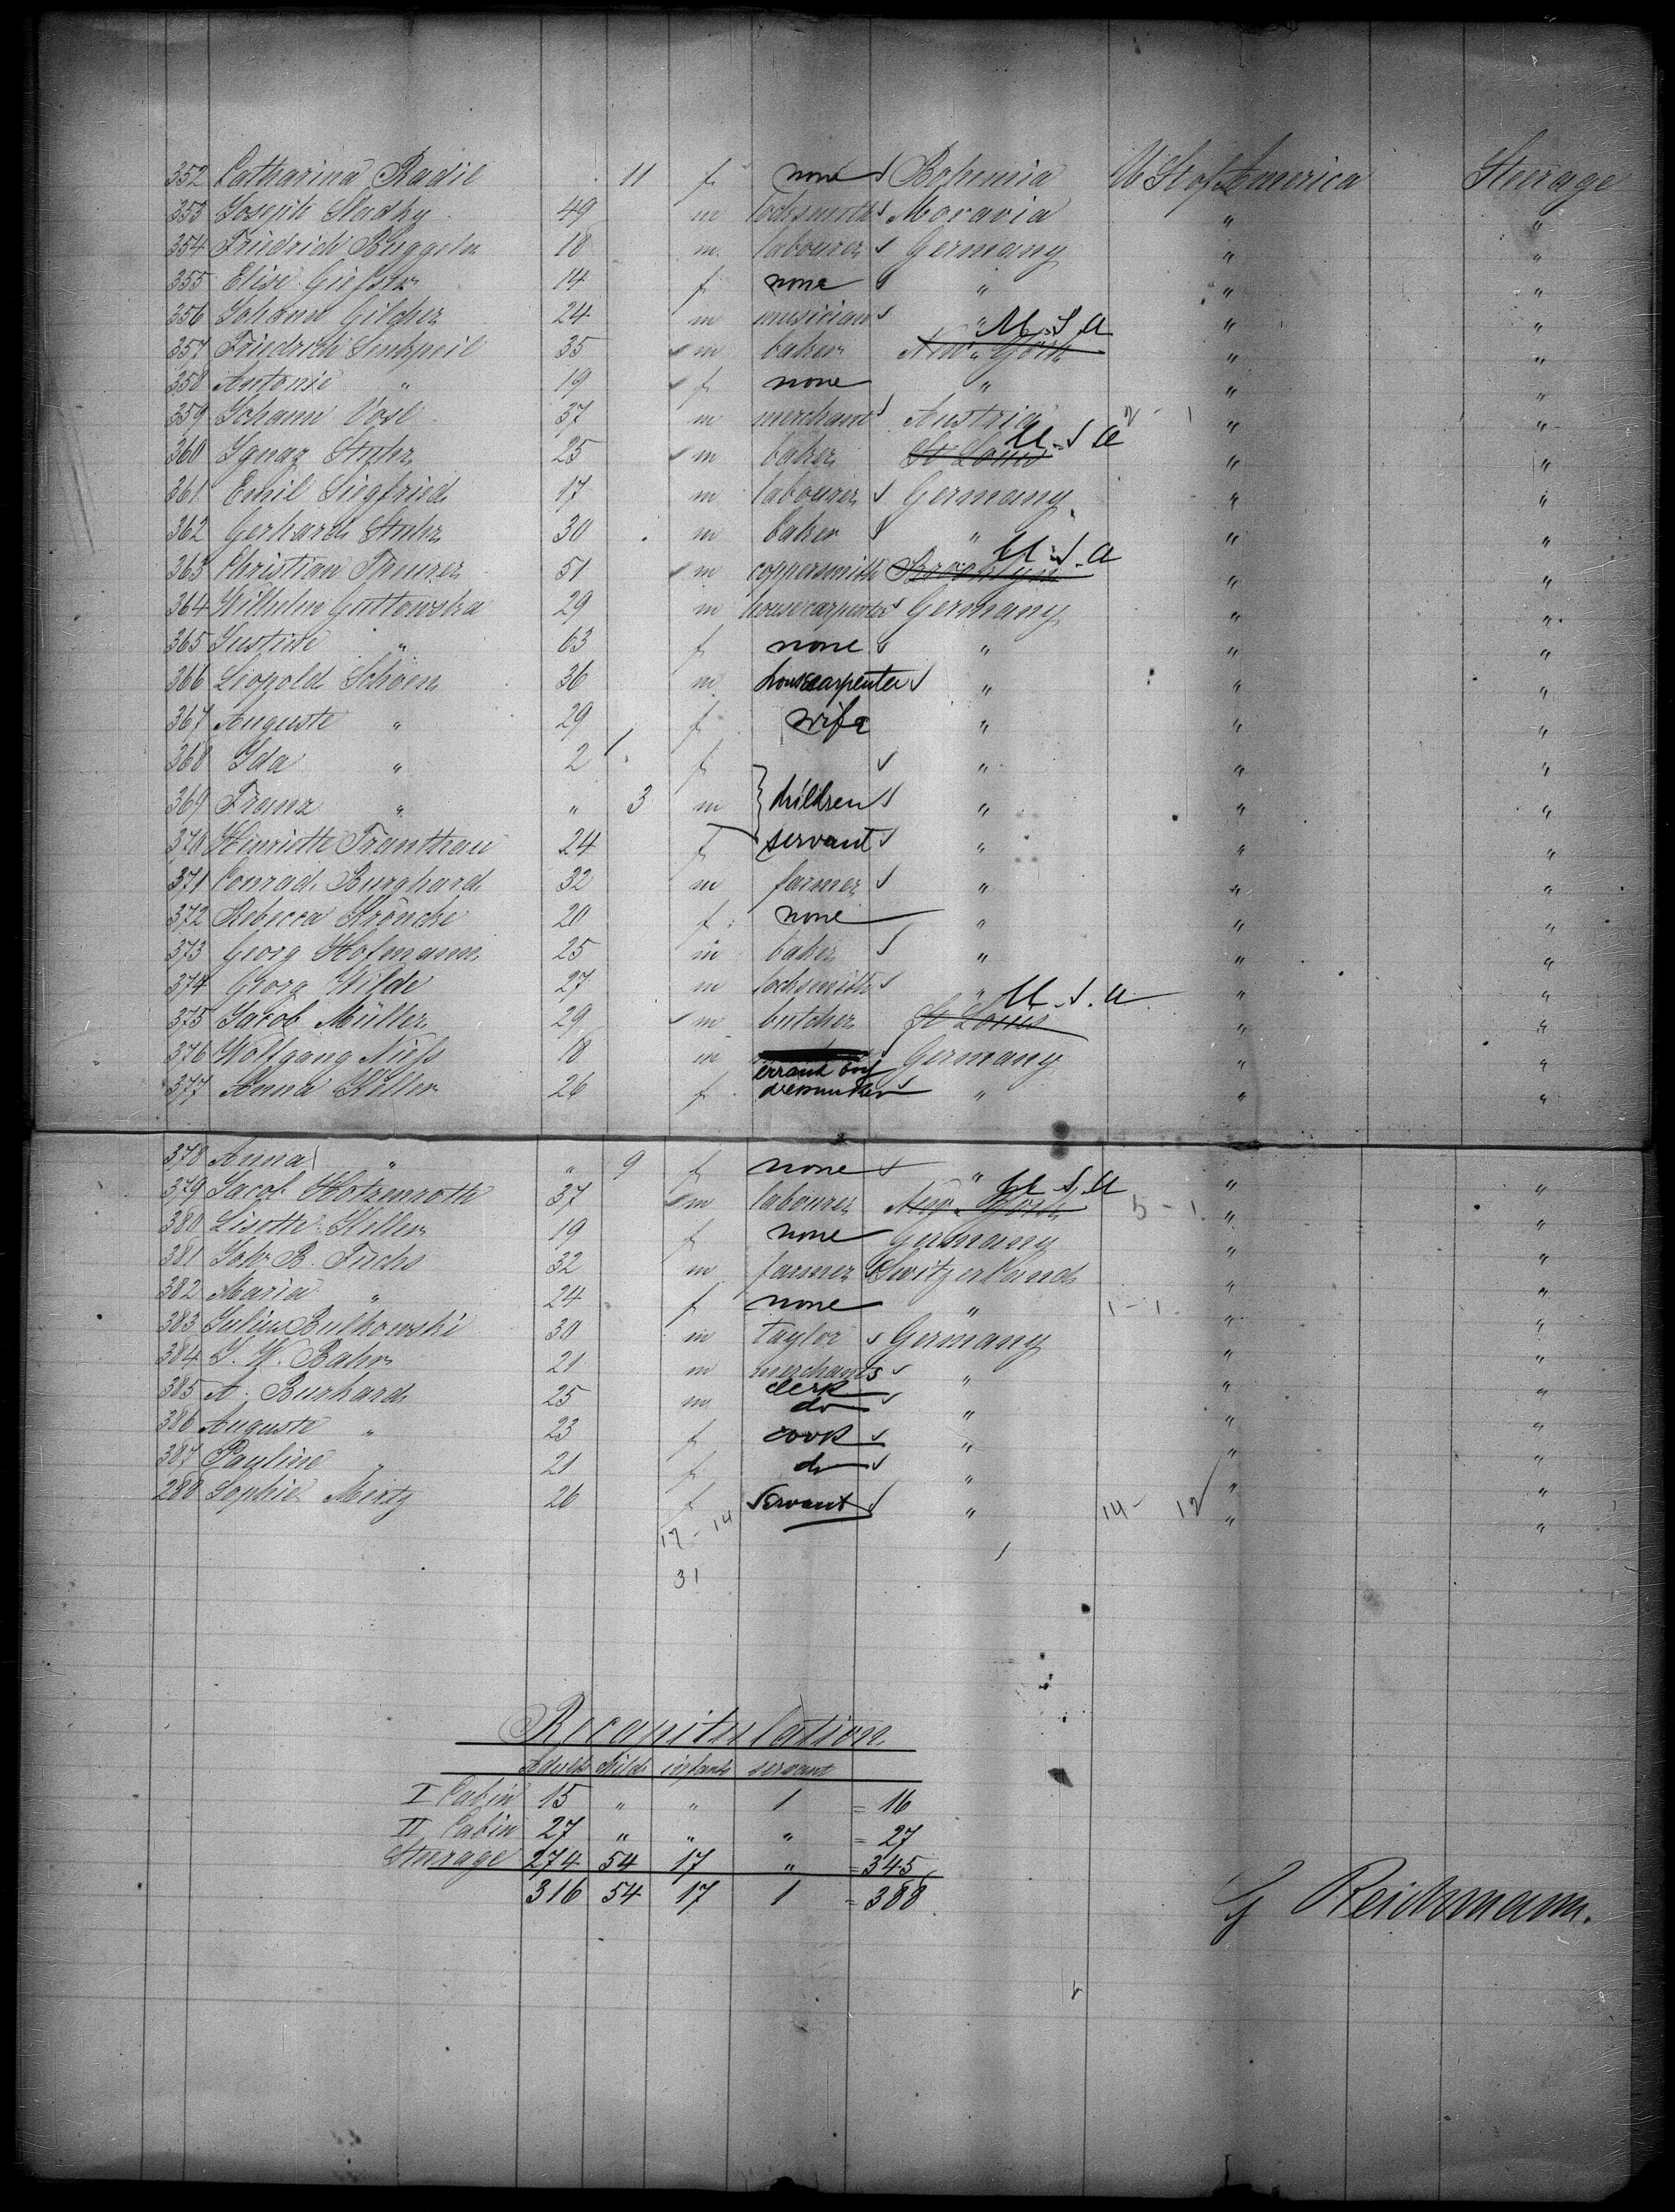 352 Catharina Radil 11 f none Bohemia U St of America Steerage
353 Joseph Sladky 49 m locksmith Moravia " "
354 Friedrich 18 m labourer Germany " "
355 Elise 14 f none " " "
356 Johann Gilcher 24 m musician " " "
U.S.A
357 Friedrich 35 m baker New York " "
358 Antonie " 19 f none " " "
359 Johann Vosl 37 m merchant Austria 2 - 1 " "
U.S.A
360 Ignaz Stuhr 25 m baker St Louis " "
361 Emil Siegfried 17 m labourer Germany " "
362 Gerhard Stuhr 30 m baker " " "
U.S.A
363 Christian 51 m coppersmith Brooklyn " "
364 Wilhelm Guttowska 29 m housecarpenter Germany " "
365 Justine " 63 f none " " "
366 Leopold Schoen 36 m housecarpenter " " "
367 Auguste " 29 f wife " " "
368 Ida " 2 f " " "
369 Franz " " 3 m children " " "
370 Henriette 24 f servant " " "
371 Conrad Burghard 32 m farmer " " "
372 Rebecca Kröncke 20 f none " " "
373 Georg Hofmann 25 m baker " " "
374 Georg Wilde 27 m locksmith " " "
U.S.A
375 Jacob Müller 29 m butcher St Louis " "
376 Wolfgang Niess 18 m Germany " "
errand boy
377 Anna Keller 26 f dressmaker " " "
378 Anna " " 9 f none " " "
U.S.A
379 Jacob Hotzenroth 37 m labourer New York 5 - 1 " "
380 Lisette Keller 19 f none Germany " "
381 Joh. B. Fuchs 32 m farmer Switzerland " "
382 Maria " 24 f none " 1 - 1 " "
383 Julius Bulkowski 30 m Taylor Germany " "
384 J. W. Bahr 21 m merchants " " "
clerk
385 A. Burhard 25 m do " " "
386 Auguste " 23 f cook " " "
387 Pauline " 21 f do " " "
280 Sophie Mertz 26 f Servant " 14 - 12 " "
17 - 14
31
Recapitulation
Adults Child infants servant
I Cabin 15 " " 1 = 16
II Cabin 27 " " " = 27
Steerage 274 54 17 " = 345
316 54 17 1 = 388